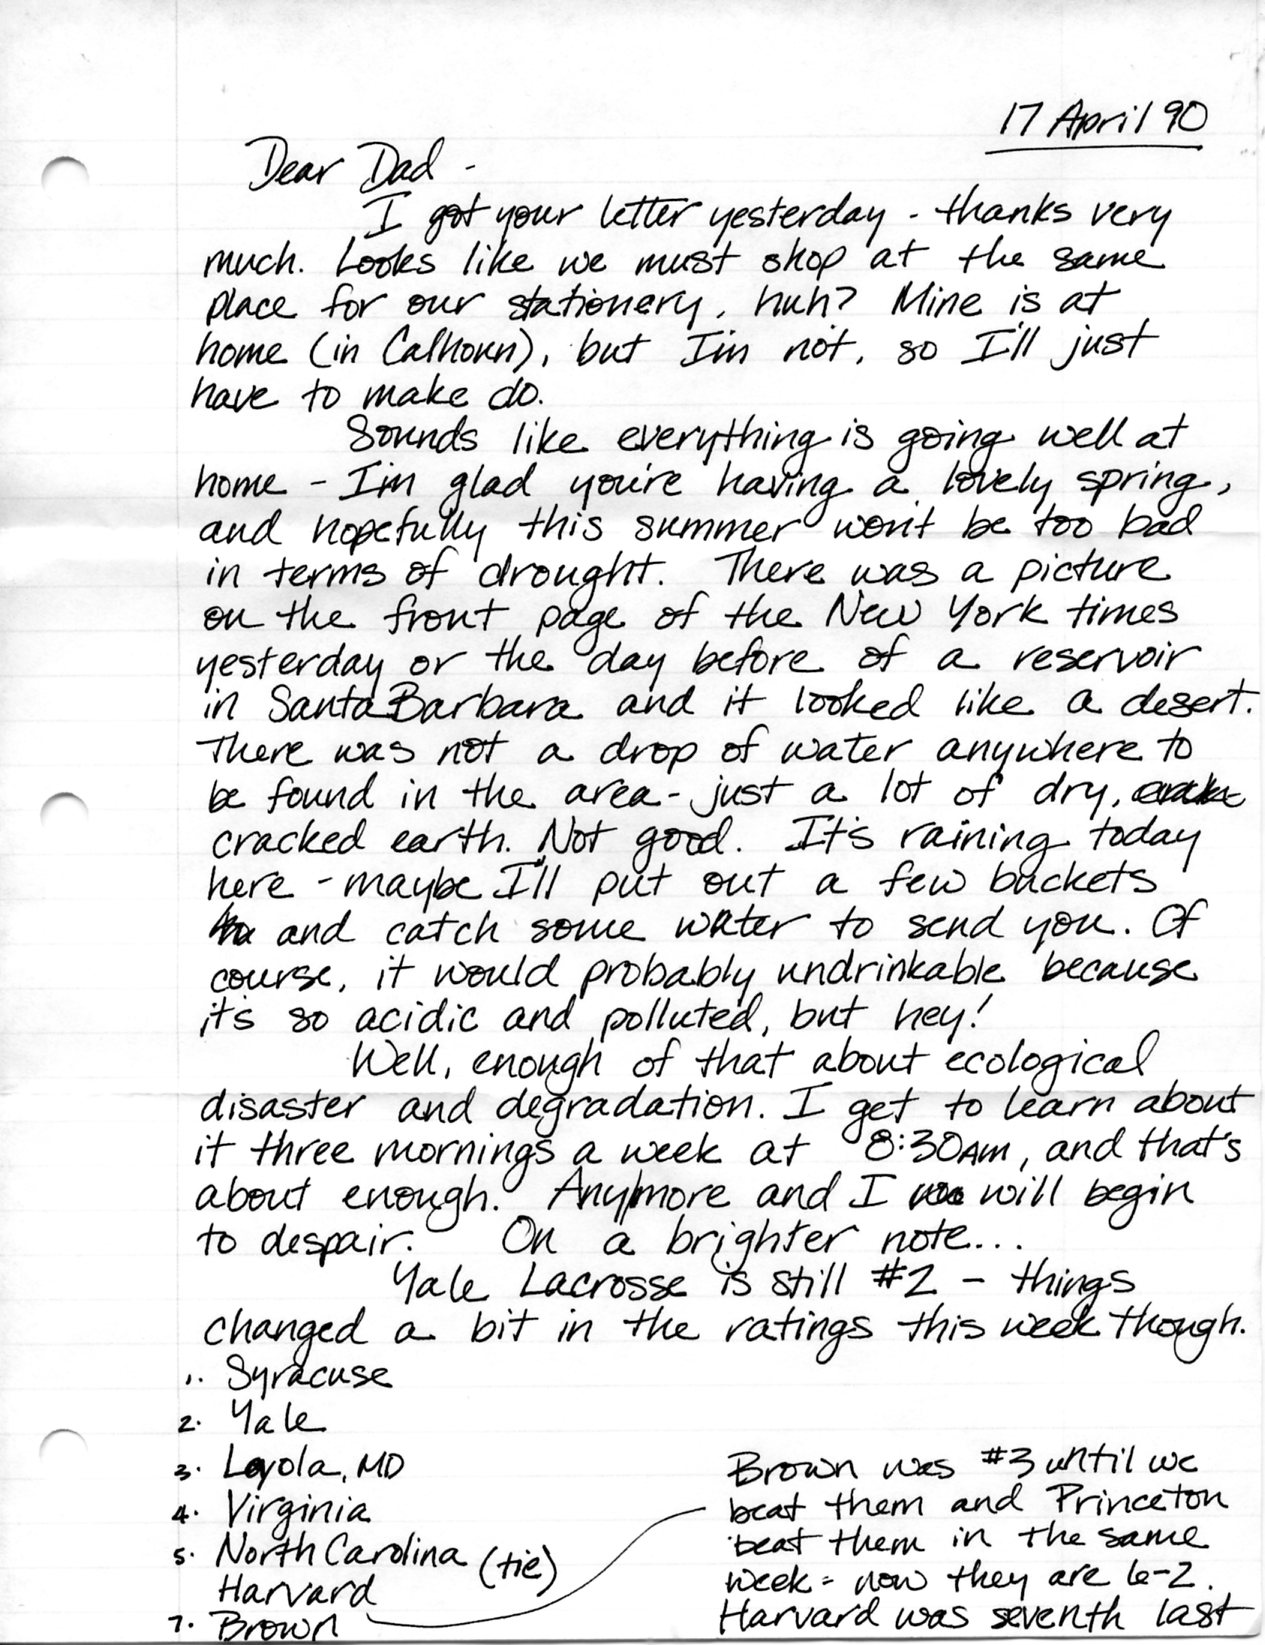 17 April 90
Dear Dad -
I got your letter yesterday - thanks very
much. Looks like we must shop at the same
place for our stationery, huh? Mine is at
home (in Calhoun), but I'm not, so I'll just
have to make do.
Sounds like everything is going well at
home - I'm glad you're having a lovely spring,
and hopefully this summer won't be too bad
in terms of drought. There was a picture
on the front page of the New York times
yesterday or the day before of a reservoir
in Santa Barbara and it looked like a desert.
There was not a drop of water anywhere to
be found in the area - just a lot of dry,
cracked earth. Not good. It's raining today
here - maybe I'll put out a few buckets
and catch some water to send you. Of
course, it would probably undrinkable because
it's so acidic and polluted, but hey!
Well, enough of that about ecological
disaster and degradation. I get to learn about
it three mornings a week at 8:30AM, and that's
about enough. Any/more and I will begin
to despair. On a brighter note...
Yale Lacrosse is still #2 - things
changed a bit in the ratings this week though.
1. Syracuse
2. Yale
3. Loyola, MD
4. Virginia
5. North Carolina (tie)
Harvard
7. Brown
Brown was #3 until we
beat them and Princeton
beat them in the same
week - now they are 6-2.
Harvard was seventh last